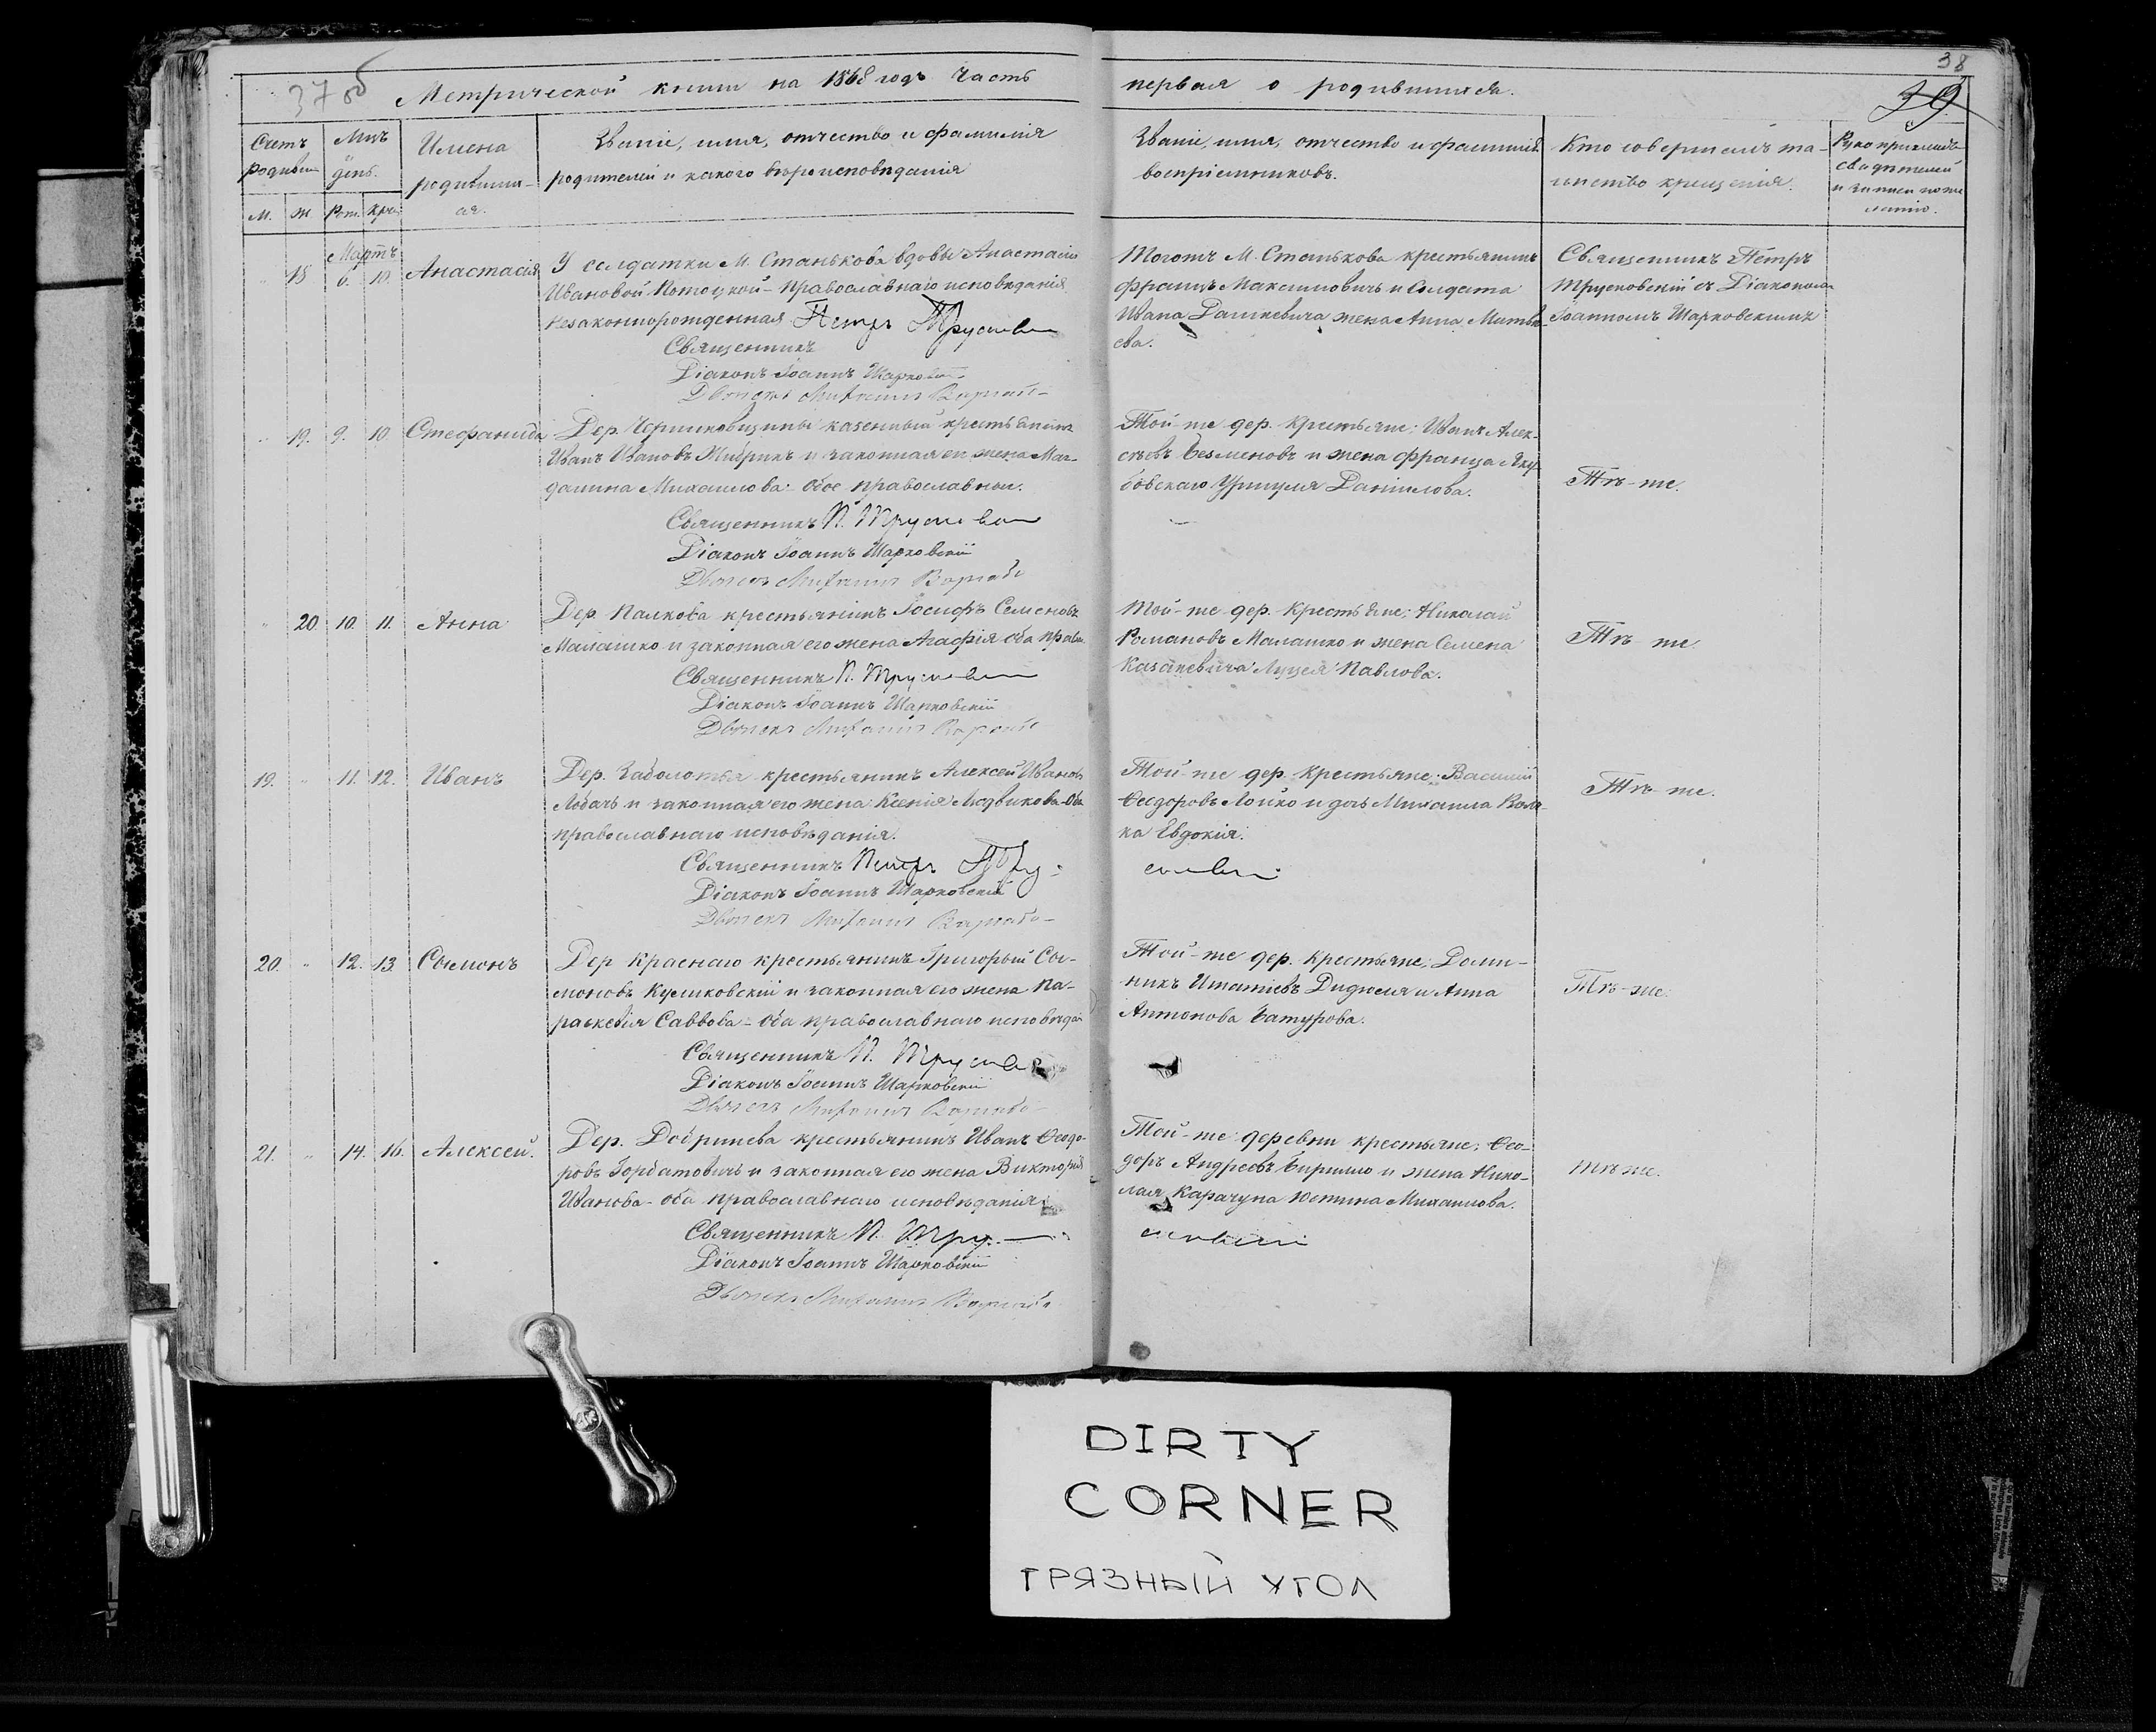 37 об
Метрической книги на 1868 годъ Часть
первая о родившихся.
38
39
Счетъ
родивш
Мцъ
день.
Имена
родивших-
ся.
Званіе, имя, отчество и фамилія
родителей и какого вѣроисповѣданія
Званіе, имя, отчество и фамилія
воспріемниковъ.
Кто совершалъ та-
инство крещенія.
Рукоприклад-
свидѣтелей
и записи по же
ланію.
М. Ж Рож. Кре
Мартъ
18 6. 10. Анастасія
У солдатки М. Станькова вдовы Анастасіи
Ивановой Потоцкой - Православнаго исповѣданія
Незаконнорожденная Петръ
Священникъ
Діаконъ Іоаннъ Шарковскій
Тогожъ М. Станькова крестьянинъ
Францъ Максимовичъ и Солдата
Ивана Дашкевича жена Анна Матвѣ-
ева.
Священникъ Петръ
Трусковскій съ Діакономъ
Іоанномъ Шарковскимъ
19. 9. 10. Стефанида
Дер. казенный крестьянинъ
Иванъ Ивановъ и законная его жена Маг-
далина Михаилова - Обое православнои.
Священникъ П.
Діаконъ Іоаннъ Шарковскій
Той-же дер. Крестьяне: Иванъ Алек-
сѣевъ Безменовъ и жена Франца Яку-
бовскаго Данилова.
Тѣ-же.
20. 10. 11. Анна
Дер. Палкова крестьянинъ Іосифъ Семеновъ
Малашко и законная его жена Агафія Оба прав
Священникъ П.
Діаконъ Іоаннъ Шарковскій
Той-же дер. Крестьяне: Николай
Романовъ Малашко и жена Семена
Казакевича Луцея Павлова.
Тѣ-же
19. 11. 12. Иванъ
Дер. Заболотья крестьянинъ Алексей Ивановъ
Лобачъ и законная его жена Ксенія Людвикова - Оба
православнаго исповѣданія.
Священникъ Петръ Тру-
Діаконъ Іоаннъ Шарковскій
Той-же дер. Крестьяне: Василій
Ѳеодоровъ Лойко и дочь Михаила
ка Евдокія.
Тѣ-же.
20. 12. 13. Сымонъ
Дер Краснаго крестьянинъ Григорый Сы-
моновъ Куликовскій и законная его жена Па-
раскевія Саввова - Оба православнаго исповѣдан
Священникъ П.
Діаконъ Іоаннъ Шарковскій
Той-же дер. Крестьяне: Доми-
никъ Игнатіевъ Дидюля и Анна
Антонова Батурова.
Тѣ-же.
21. 14. 16. Алексей.
Дер. Добринева крестьянинъ Иванъ Ѳеодо-
ровъ Горбатовичъ и законная его жена Викторія
Иванова - оба православнаго исповѣданія
Священникъ П. Тру
Діаконъ Іоаннъ Шарковскій
Той-же деревни крестьяне: Ѳео-
доръ Андреевъ Бирилло и жена Нико-
лая Карачуна Юстина Михаилова.
Тѣ же.
DIRTY
CORNER
ГРЯЗНЫЙ УГОЛ